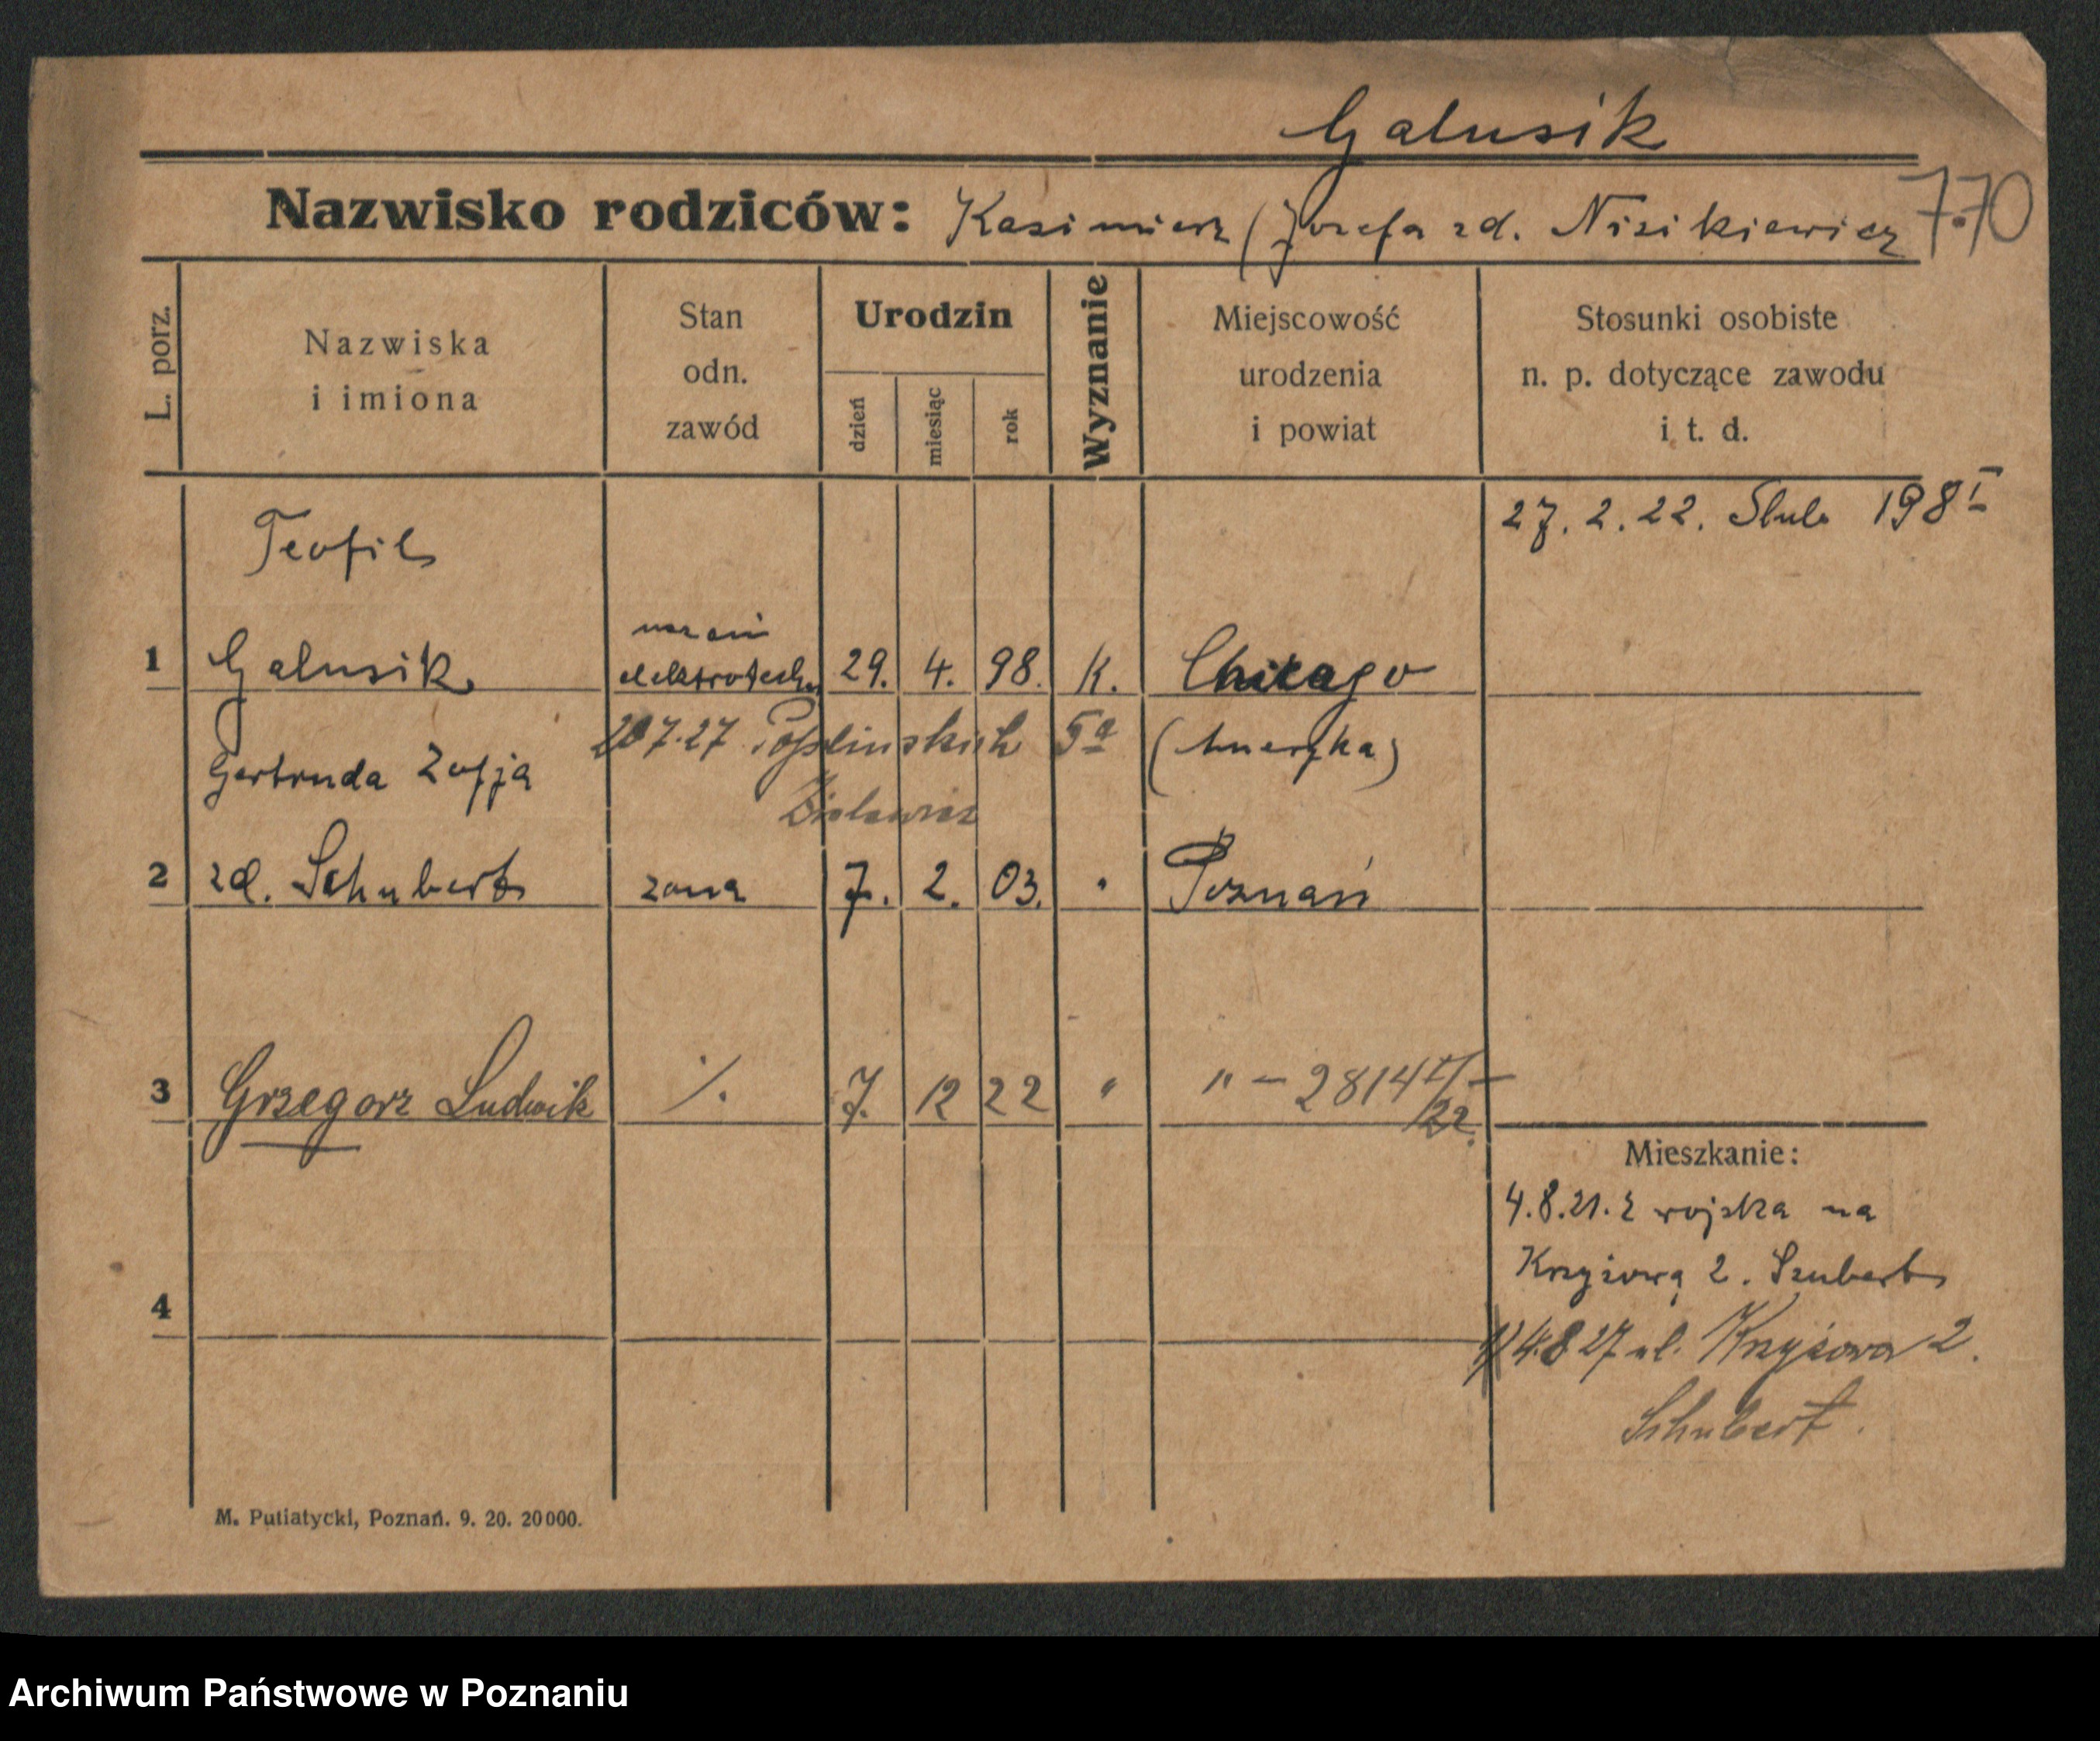 Galusik
Nazwisko rodziców: Kazimierz / Józefa zd. Nizikiewicz 7.70
L. porz.
Nazwiska
i imiona
Stan
odn.
zawód
Urodzin
dzień
miesiąc
rok
Wyznanie
Miejscowość
urodzenia
i powiat
Stosunki osobiste
n. p. dotyczące zawodu
i t. d.
27. 2. 22. Slub 198 I
Teofil
1 Galusik elektrotechn 29. 4. 98. K. Chicago
20 7.27 5a (Ameryka)
Gertruda Zofja
2 zd. Schubert zona 7. 2. 03. " Poznań
3 Grzegorz Ludwik ./. 7. 12 22 " " – 2814 II/22. –
Mieszkanie:
4.8.21. z wojska na
Krzyżową 2. Szubert
4
4.8 27 ul. Krzyżowa 2.
Schubert.
M. Putiatycki, Poznań. 9. 20. 20000.
Archiwum Państwowe w Poznaniu